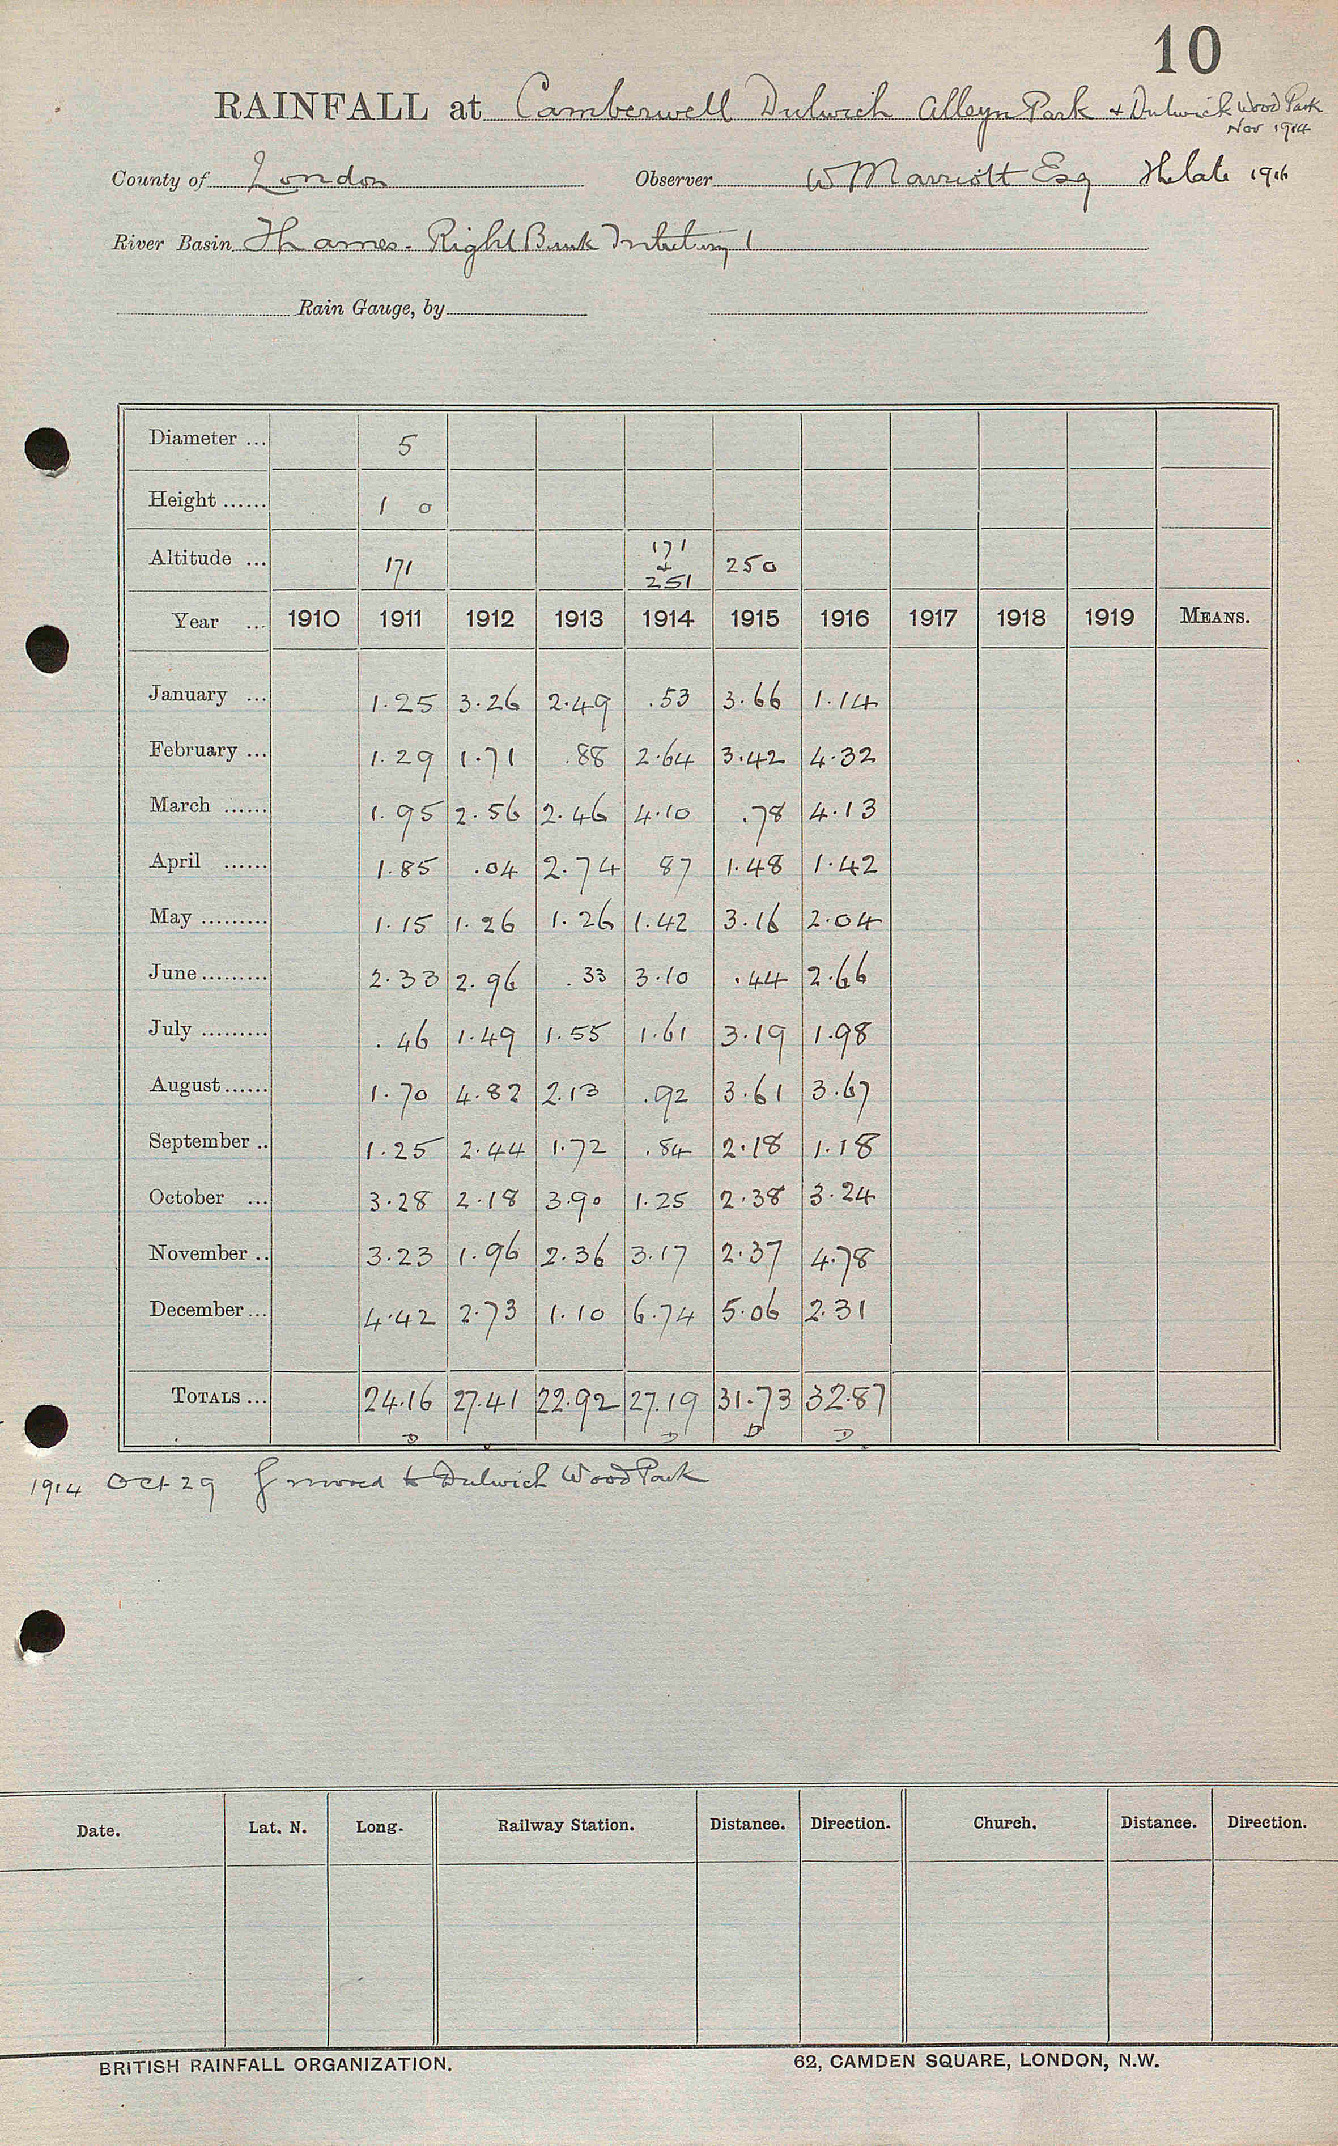 10
RAINFALL at Camberwell Dulwich Alleyn Park + Dulwich Wood Park
Nov 1914
County of London Observer W Marriott Esq The late 1916
River Basin Thames. Right Bank Tributary 1
Rain Gauge, by
Diameter ... 5
Height ...... 1 0
Altitude ... 171 171 + 251 250
Year ... 1910 1911 1912 1913 1914 1915 1916 1917 1918 1919 MEANS.
January ... 1.25 3.26 2.49 .53 3.66 1.14
February ... 1.29 1.71 .88 2.64 3.42 4.32
March ...... 1.95 2.56 2.46 4.10 .78 4.13
April ...... 1.85 .04 2.74 87 1.48 1.42
May ......... 1.15 1.26 1.26 1.42 3.16 2.04
June ......... 2.33 2.96 .33 3.10 .44 2.66
July ......... .46 1.49 1.55 1.61 3.19 1.98
August ...... 1.70 4.82 2.13 .92 3.61 3.67
September .. 1.25 2.44 1.72 .84 2.18 1.18
October ... 3.28 2.18 3.90 1.25 2.38 3.24
November .. 3.23 1.96 2.36 3.17 2.37 4.78
December ... 4.42 2.73 1.10 6.74 5.06 2.31
TOTALS ... 24.16 27.41 22.92 27.19 31.73 32.87
D D D D
1914 Oct 29 moved to Dulwich Wood Park
Date. Lat. N. Long. Railway Station. Distance. Direction. Church. Distance. Direction.
BRITISH RAINFALL ORGANIZATION. 62, CAMDEN SQUARE, LONDON, N.W.